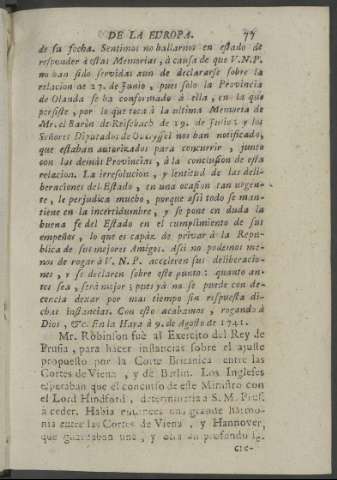 DE LA EUROPA. 77
de su fecha. Sentimos no hallarnos en estado de
responder à estas Memorias, à causa de que V.N.P.
no han sido servidas aun de declararse sobre la
relacion de 27. de Junio, pues solo la Provincia
de Olanda se ha conformado à ella, en la que
persiste, por lo que toca à la ultima Memoria de
Mr. el Baròn de Reisbach de 19. de Junio: y los
Señores Diputados de Overyssel nos han notificado,
que estaban autorizados para concurrir, junto
con las demàs Provincias, à la conclusion de esta
relacion. La irresolucion, y lentitud de las deli-
beraciones del Estado, en una ocasion tan urgen-
te, le perjudica mucho, porque assi todo se man-
tiene en la incertidumbre, y se pone en duda la
buena fe del Estado en el cumplimiento de sus
empeños, lo que es capàz de privar à la Repu-
blica de sus mejores Amigos. Assi no podemos me-
nos de rogar à V. N. P. acceleren sus deliberacio-
nes, y se declaren sobre este punto: quanto an-
tes sea, serà mejor; pues yà no se puede con de-
cencia dexar por mas tiempo sin respuesta di-
chas instancias. Con esto acabamos, rogando à
Dios, &c. En la Haya à 9. de Agosto de 1741.
Mr. Robinson fuè al Exercito del Rey de
Prusia, para hacer instancias sobre el ajuste
propuesto por la Corte Britanica entre las
Cortes de Viena, y de Berlin. Los Ingleses
esperaban que el concurso de este Ministro con
el Lord Hindford, determinaria à S. M. Prus.
à ceder. Habia entonces una grande harmo-
nia entre las Cortes de Viena, y Hannover,
que guardaban una, y otra un profundo si-